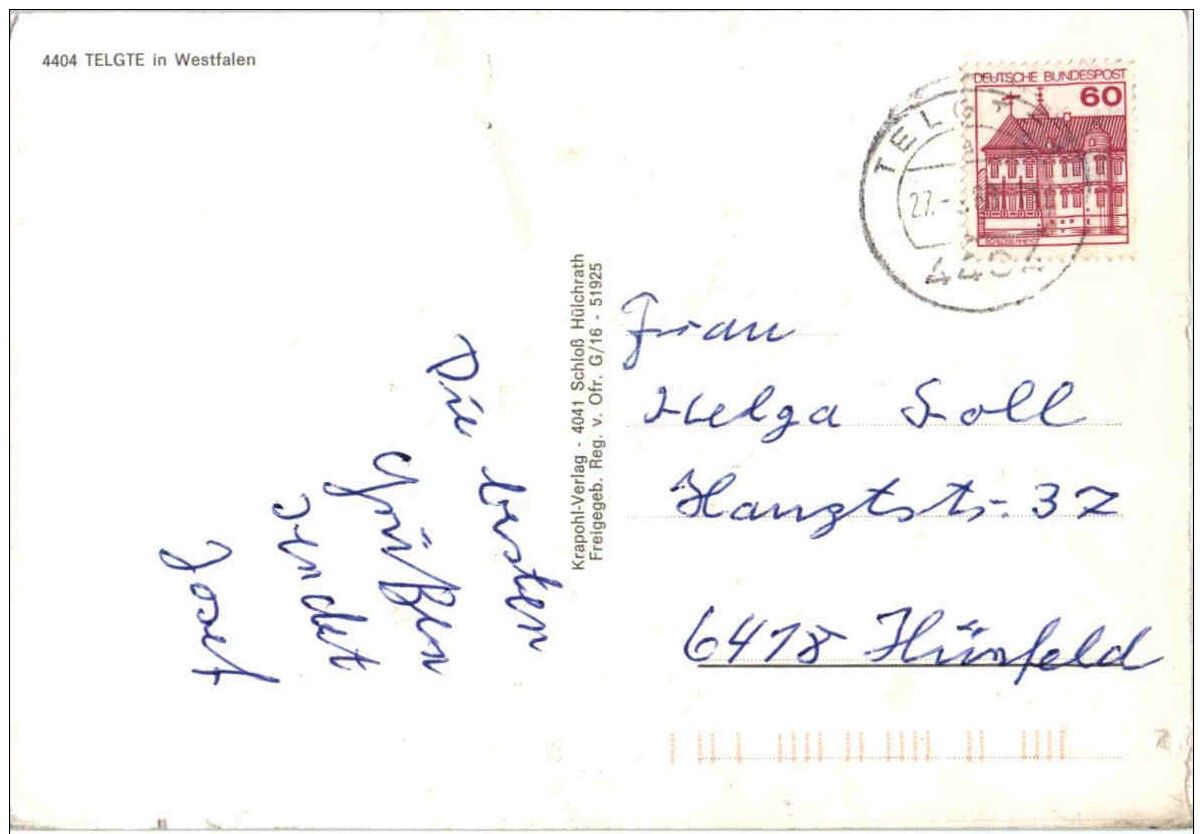 4404 TELGTE in Westfalen
DEUTSCHE BUNDESPOST
60
TELGTE
27.
4404
Krapohl-Verlag - 4041 Schloß Hülchrath
Freigegeb. Reg. v. Ofr. G/16 - 51925
Die besten
Grüßen
sendet
Josef
Frau
Helga Soll
Hauptstr. 37
6418 Hünfeld